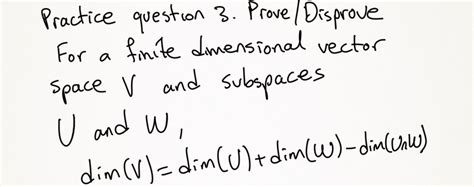 Practice question 3. Prove/Disprove
For a finite dimensional vector
space V and subspaces
U and W,
dim(V) = dim(U) + dim(W) - dim(U∩W)